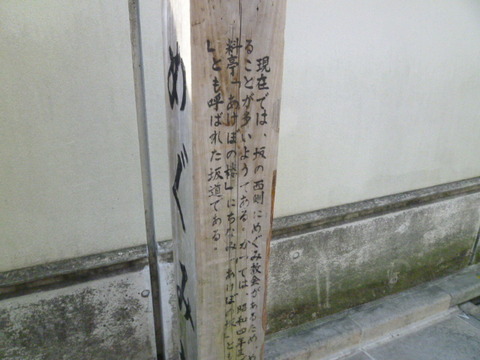 めぐみ
現在では、坂の西側にめぐみ教会があるため、め
ることが多いようである。かつては、昭和四年ま
料亭「あけぼの楼」にちなみ「あけぼの
」とも呼ばれた坂道である。